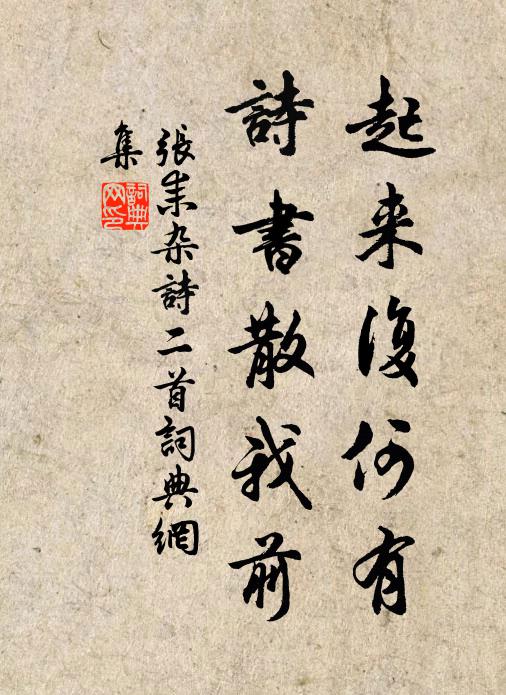 起来復何有
詩書散我前
張耒杂詩二首詞典網
集
詞典网印